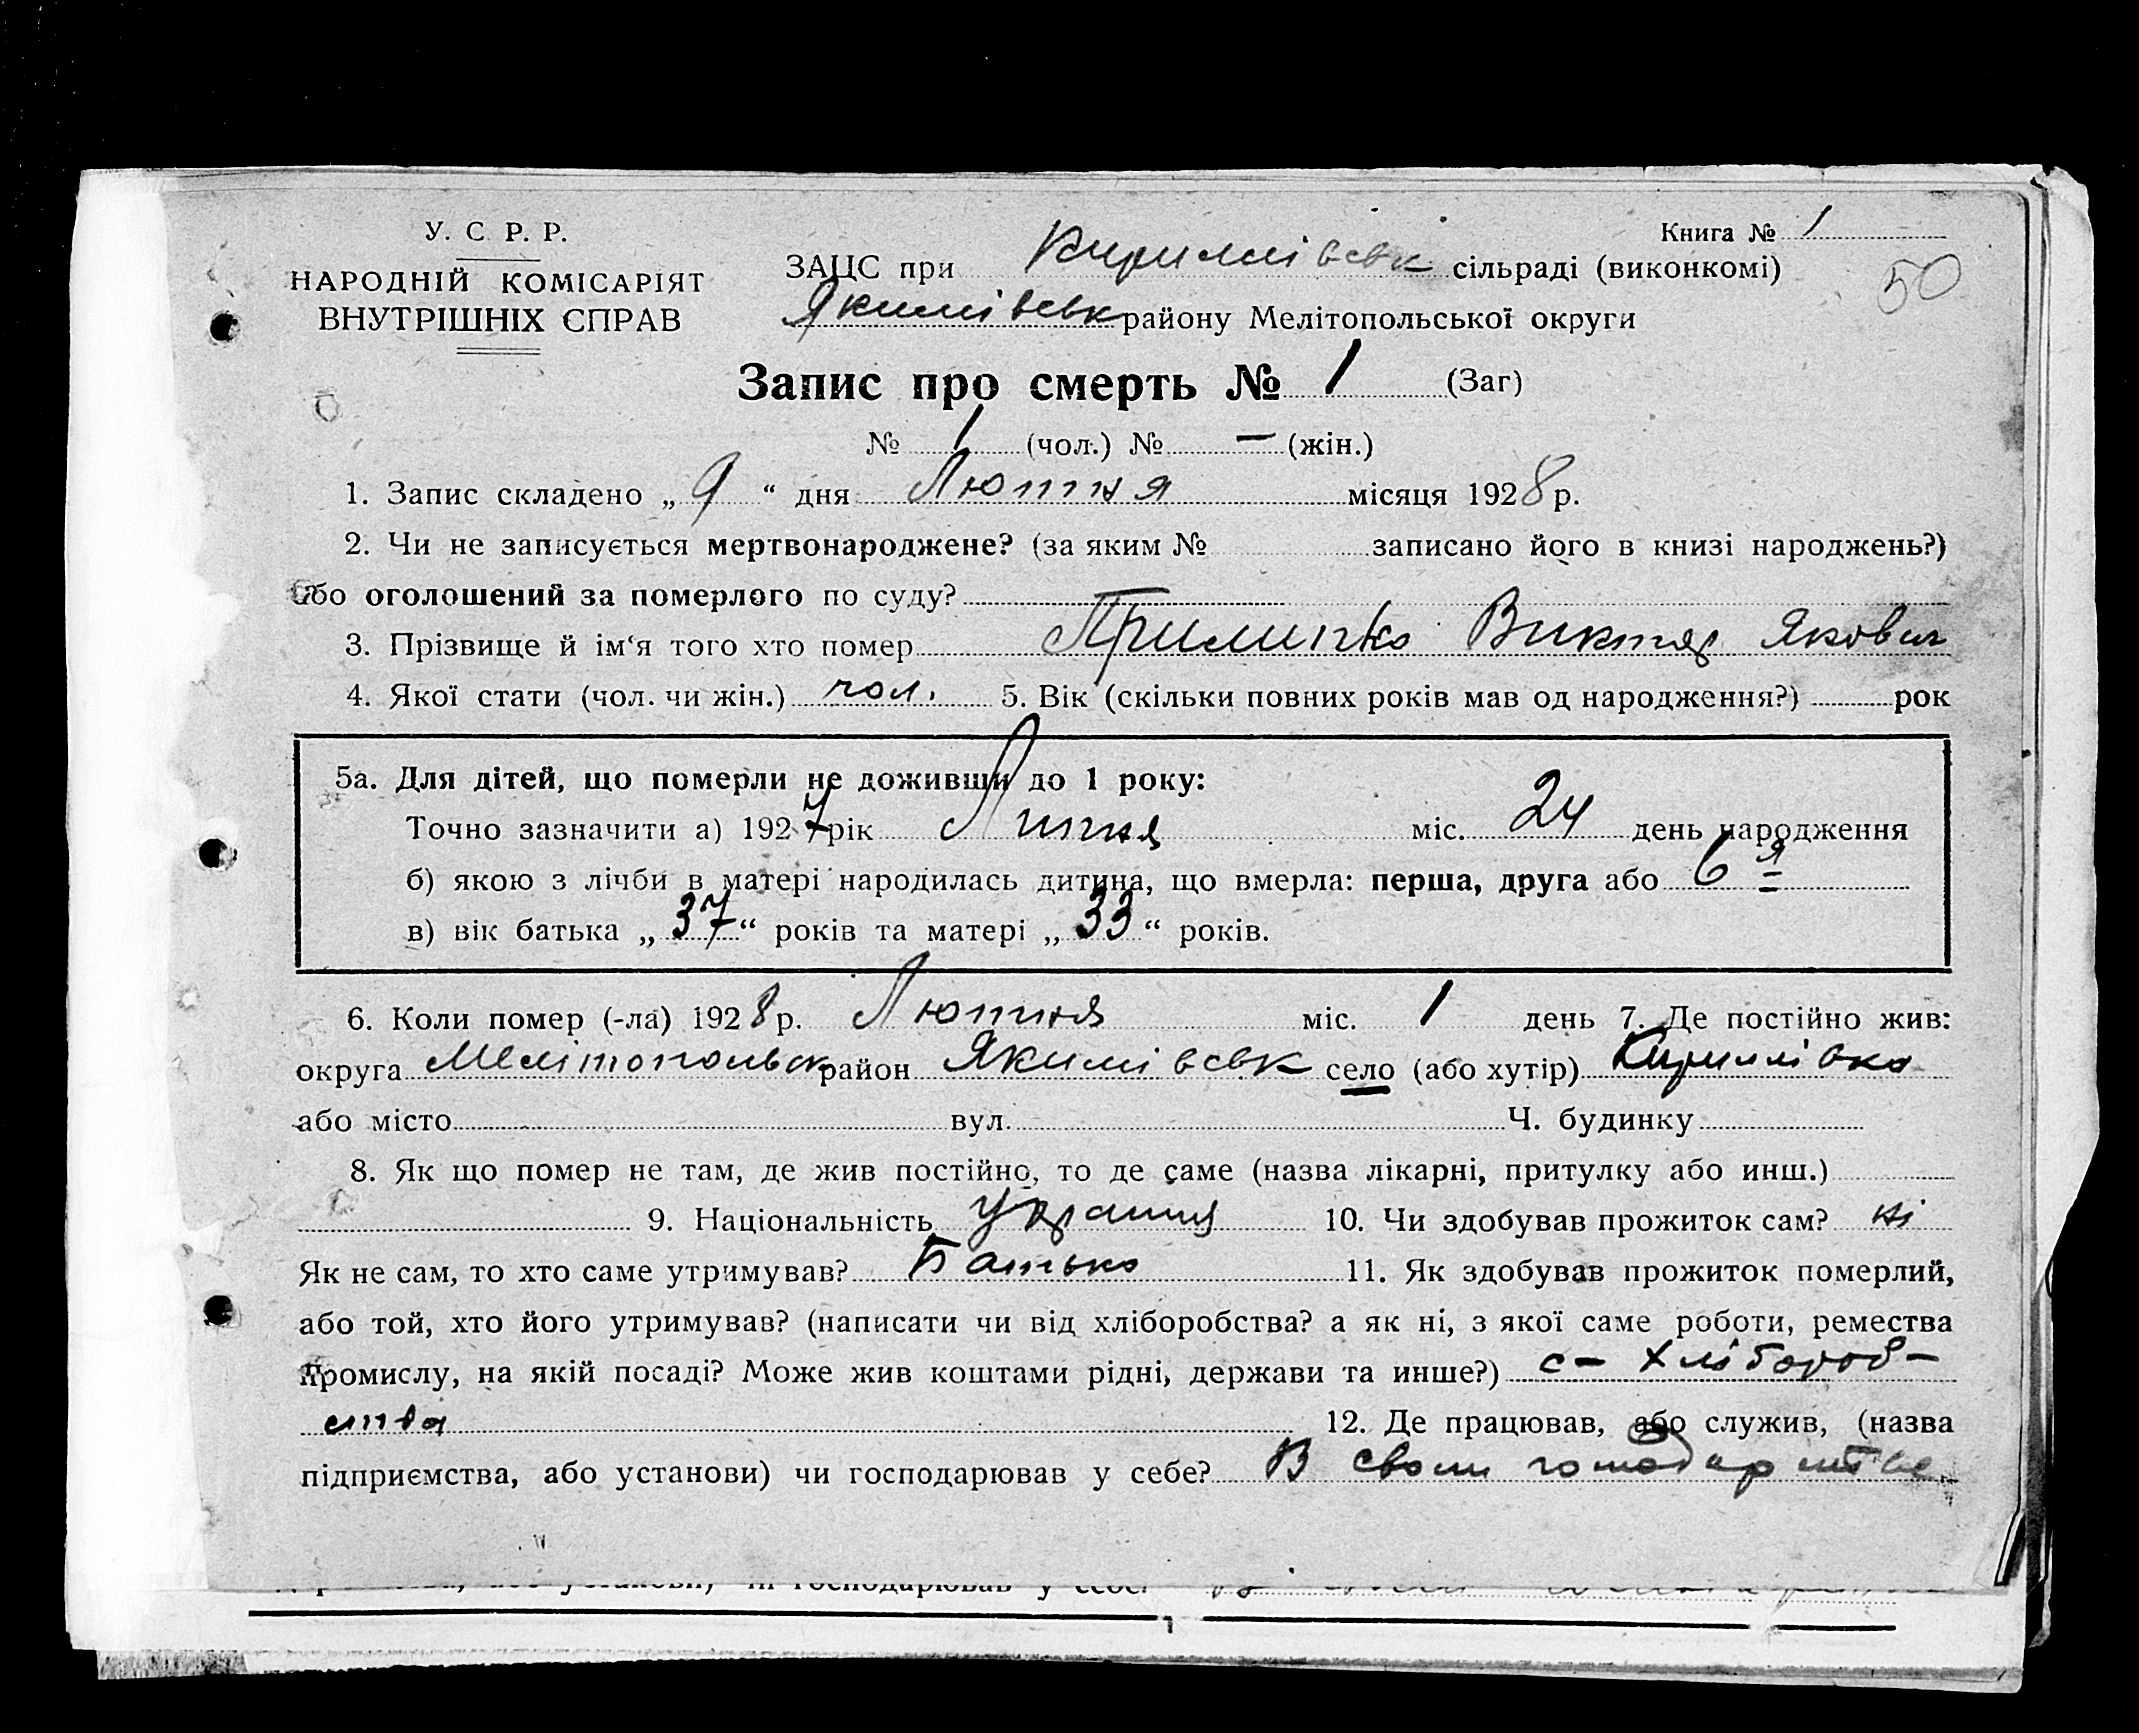 У. С. Р. Р.
НАРОДНІЙ КОМІСАРІЯТ
ВНУТРІШНІХ СПРАВ
Книга № 1
50
ЗАЦС при Кириллівськ сільраді (виконкомі)
Якимівськ району Мелітопольської округи
Запис про смерть № 1 (Заг)
№ 1 (чол.) № — (жін.)
1. Запис складено „ 9 “ дня Лютня місяця 1928 р.
2. Чи не записується мертвонароджене? (за яким № записано його в книзі народжень?)
або оголошений за померлого по суду?
3. Прізвище й ім‘я того хто помер Виктор Якович
4. Якої стати (чол. чи жін.) чол. 5. Вік (скільки повних років мав од народження?) рок
5а. Для дітей, що померли не доживши до 1 року:
Точно зазначити а) 1927 рік Липня міс. 24 день народження
б) якою з лічби в матері народилась дитина, що вмерла: перша, друга або 6 я
в) вік батька „ 37 “ років та матері „ 33 “ років.
6. Коли помер (-ла) 1928 р. Лютня міс. 1 день 7. Де постійно жив:
округа Мелітопольськ район Якимівськ село (або хутір) Кириллівка
або місто вул. Ч. будинку
8. Як що помер не там, де жив постійно, то де саме (назва лікарні, притулку або инш.)
9. Національність 10. Чи здобував прожиток сам? ні
Як не сам, то хто саме утримував? Батько 11. Як здобував прожиток померлий,
або той, хто його утримував? (написати чи від хліборобства? а як ні, з якої саме роботи, ремества
промислу, на якій посаді? Може жив коштами рідні, держави та инше?) с- хлібороб-
ства 12. Де працював, або служив, (назва
підприємства, або установи) чи господарював у себе? В своем